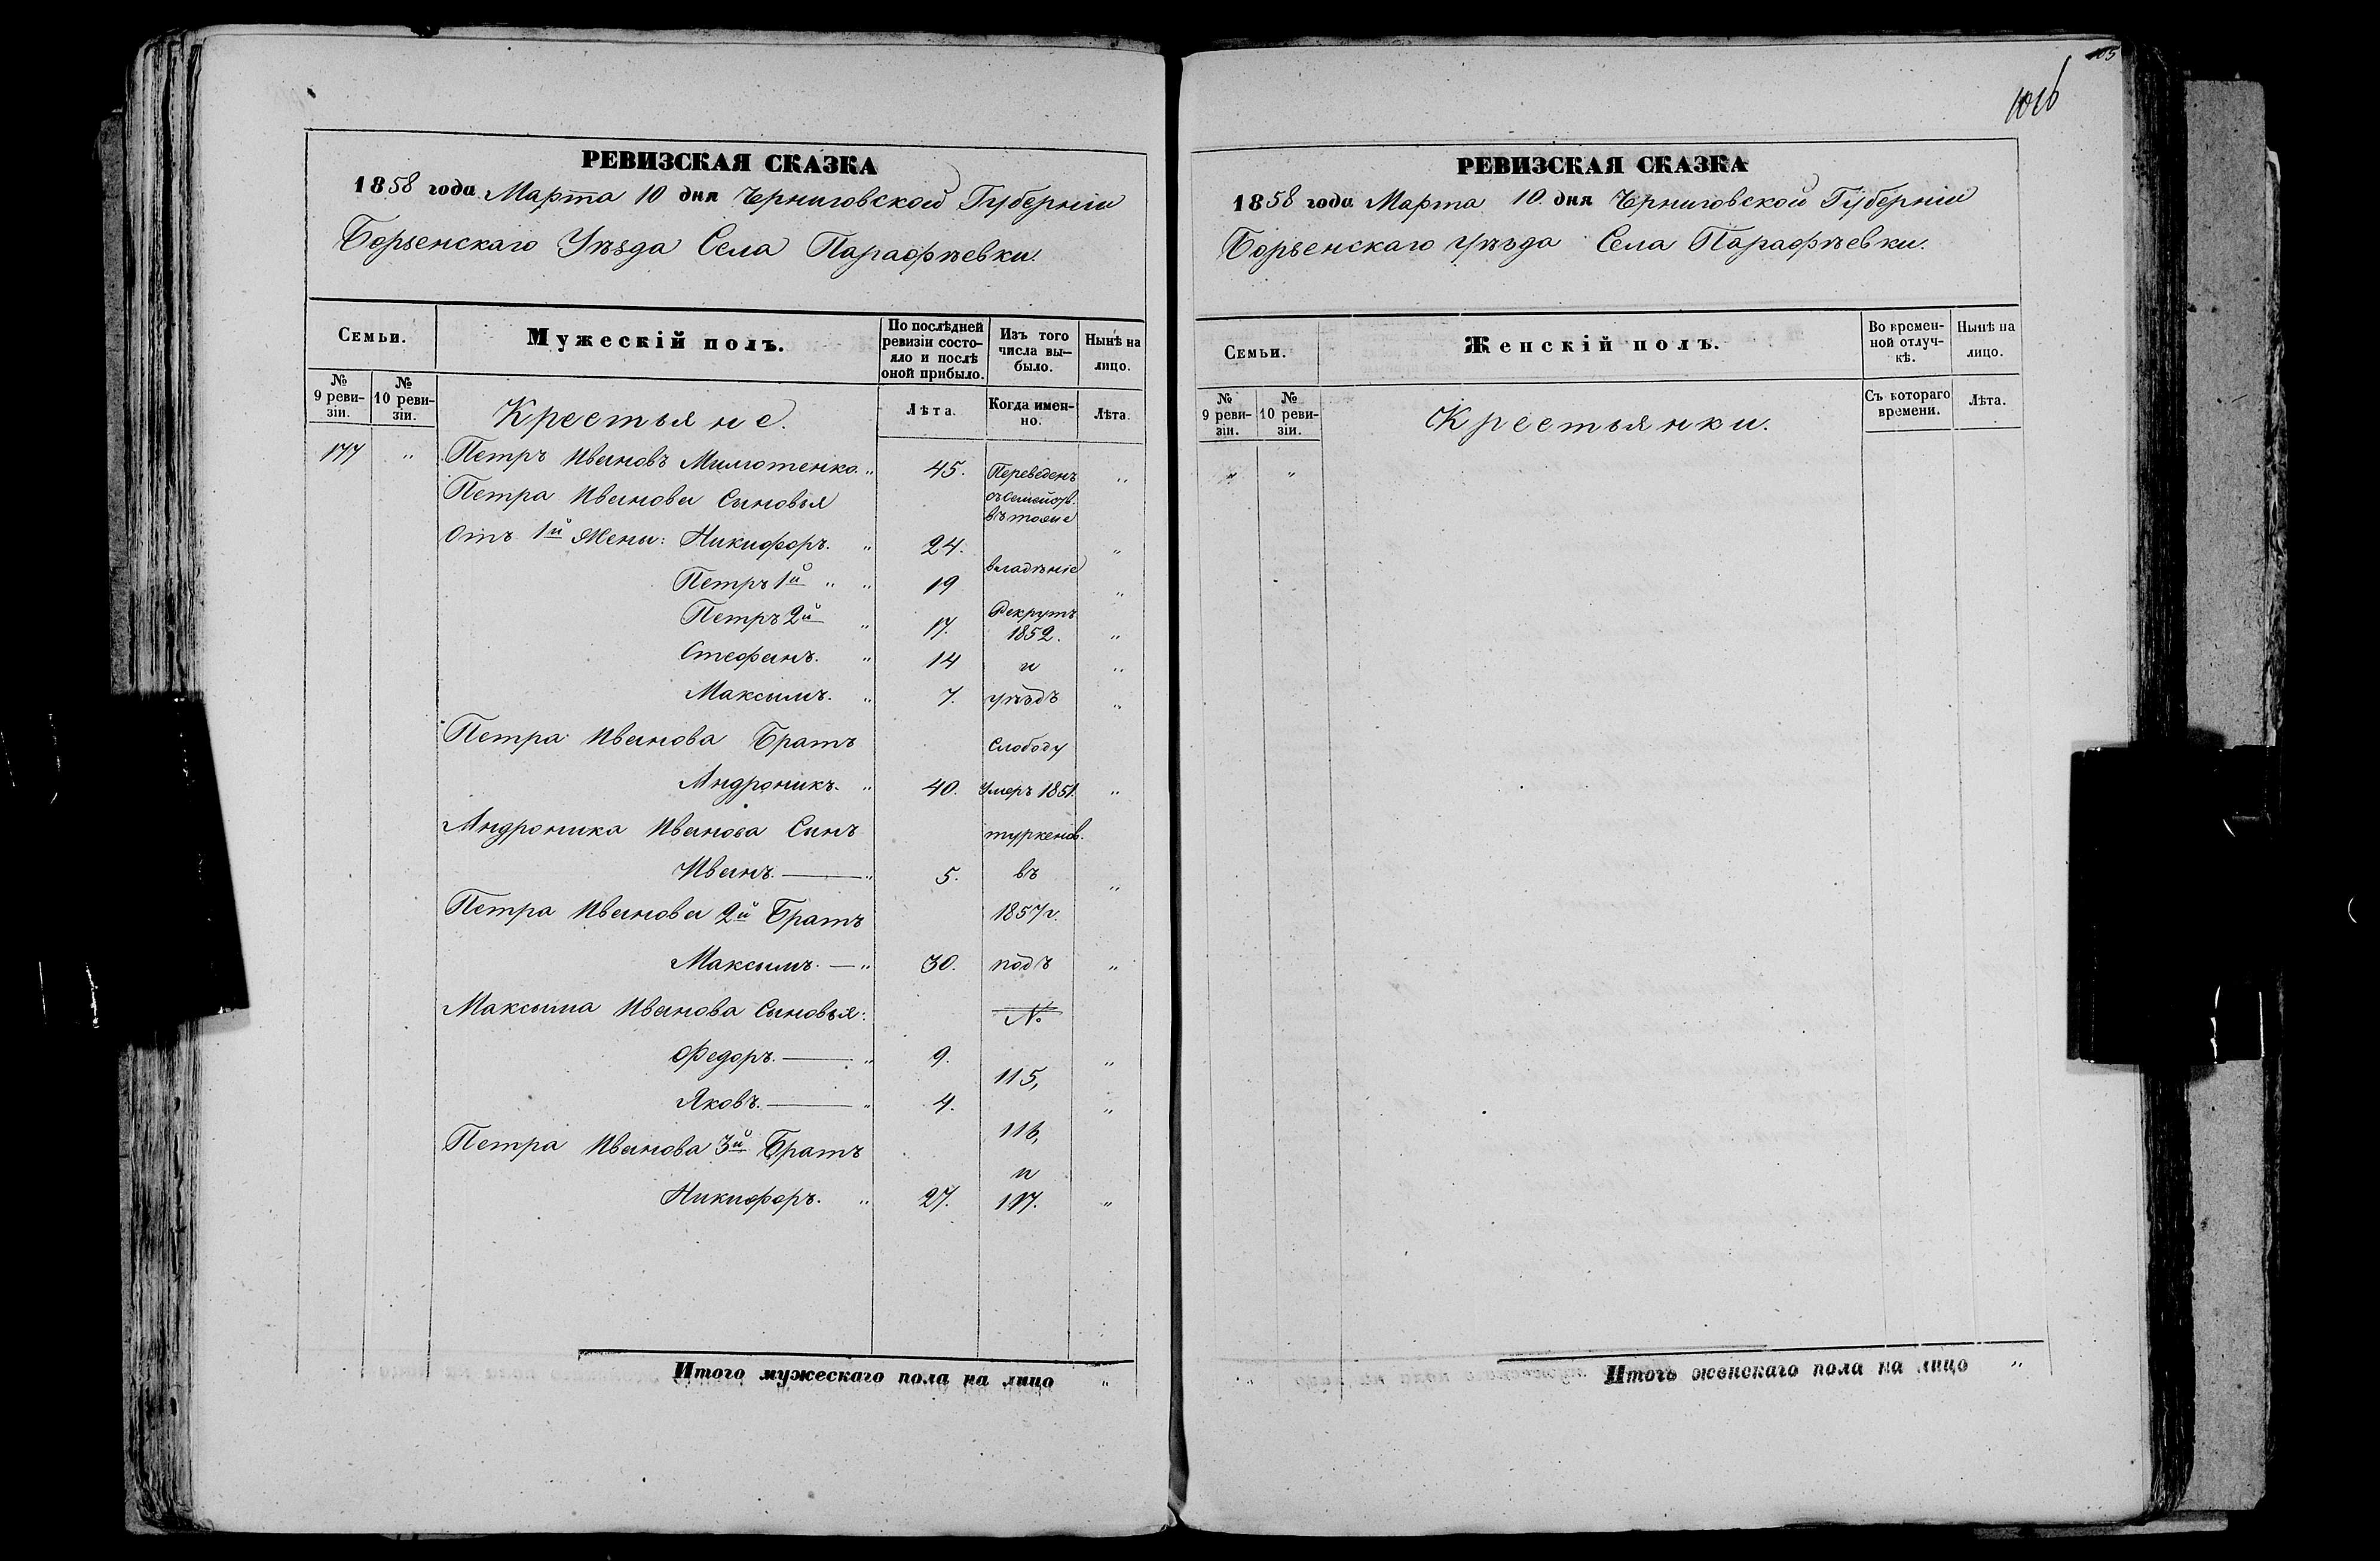 105
106
РЕВИЗСКАЯ СКАЗКА
1858 года Марта 10 дня Черниговской Губерніи
Борзенскаго Уѣзда Села Парафѣевки.
Семьи.
Мужескій полъ.
По послѣдней ревизіи состояло и послѣ оной прибыло.
Изъ того числа выбыло.
Нынѣ на лицо.
№ 9 ревизіи.
№ 10 ревизіи.
Крестьяне.
Лѣта.
Когда именно.
Лѣта.
177 " Петръ Ивановъ Милютенко " 45. Переведенъ "
Петра Иванова Сыновья съ семейств.
въ тоже
Отъ 1й Жены: Никифоръ. " 24. "
владѣніе
Петръ 1й " " 19 "
Петръ 2й " 17. Рекрутъ 1852. "
Стефанъ. " 14 и "
Максымъ. " 7. уѣздъ "
Петра Иванова Братъ Слободу
Андроникъ. " 40. Умеръ 1851. "
Андроника Иванова Синъ туркенов.
Иванъ. — " 5. въ "
Петра Иванова 2й Братъ 1857 г.
Максымъ. — " 30. подъ "
Максыма Иванова Сыновья: №
Федоръ. — " 9. "
115,
Яковъ. — " 4. "
116,
Петра Иванова 3й Братъ
и
Никифоръ. " 27. 117. "
Итого мужескаго пола на лицо "
РЕВИЗСКАЯ СКАЗКА
1858 года Марта 10 дня Черниговской Губерніи
Борзенскаго уѣзда Села Парафѣевки.
Семьи.
Женскій полъ.
Во временной отлучкѣ.
Нынѣ на лицо.
№ 9 ревизіи.
№ 10 ревизіи.
Крестьянки.
Съ котораго времени.
Лѣта.
" "
Итого женскаго пола на лицо "